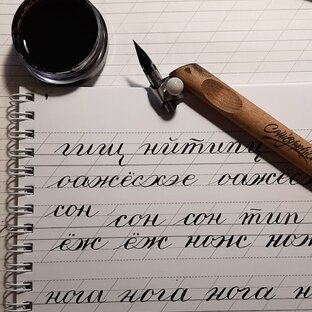 гигиц нйтипц
оажёсхэе оажёсх
сон сон сон тип
ёж ёж нож нож
нога нога нога н